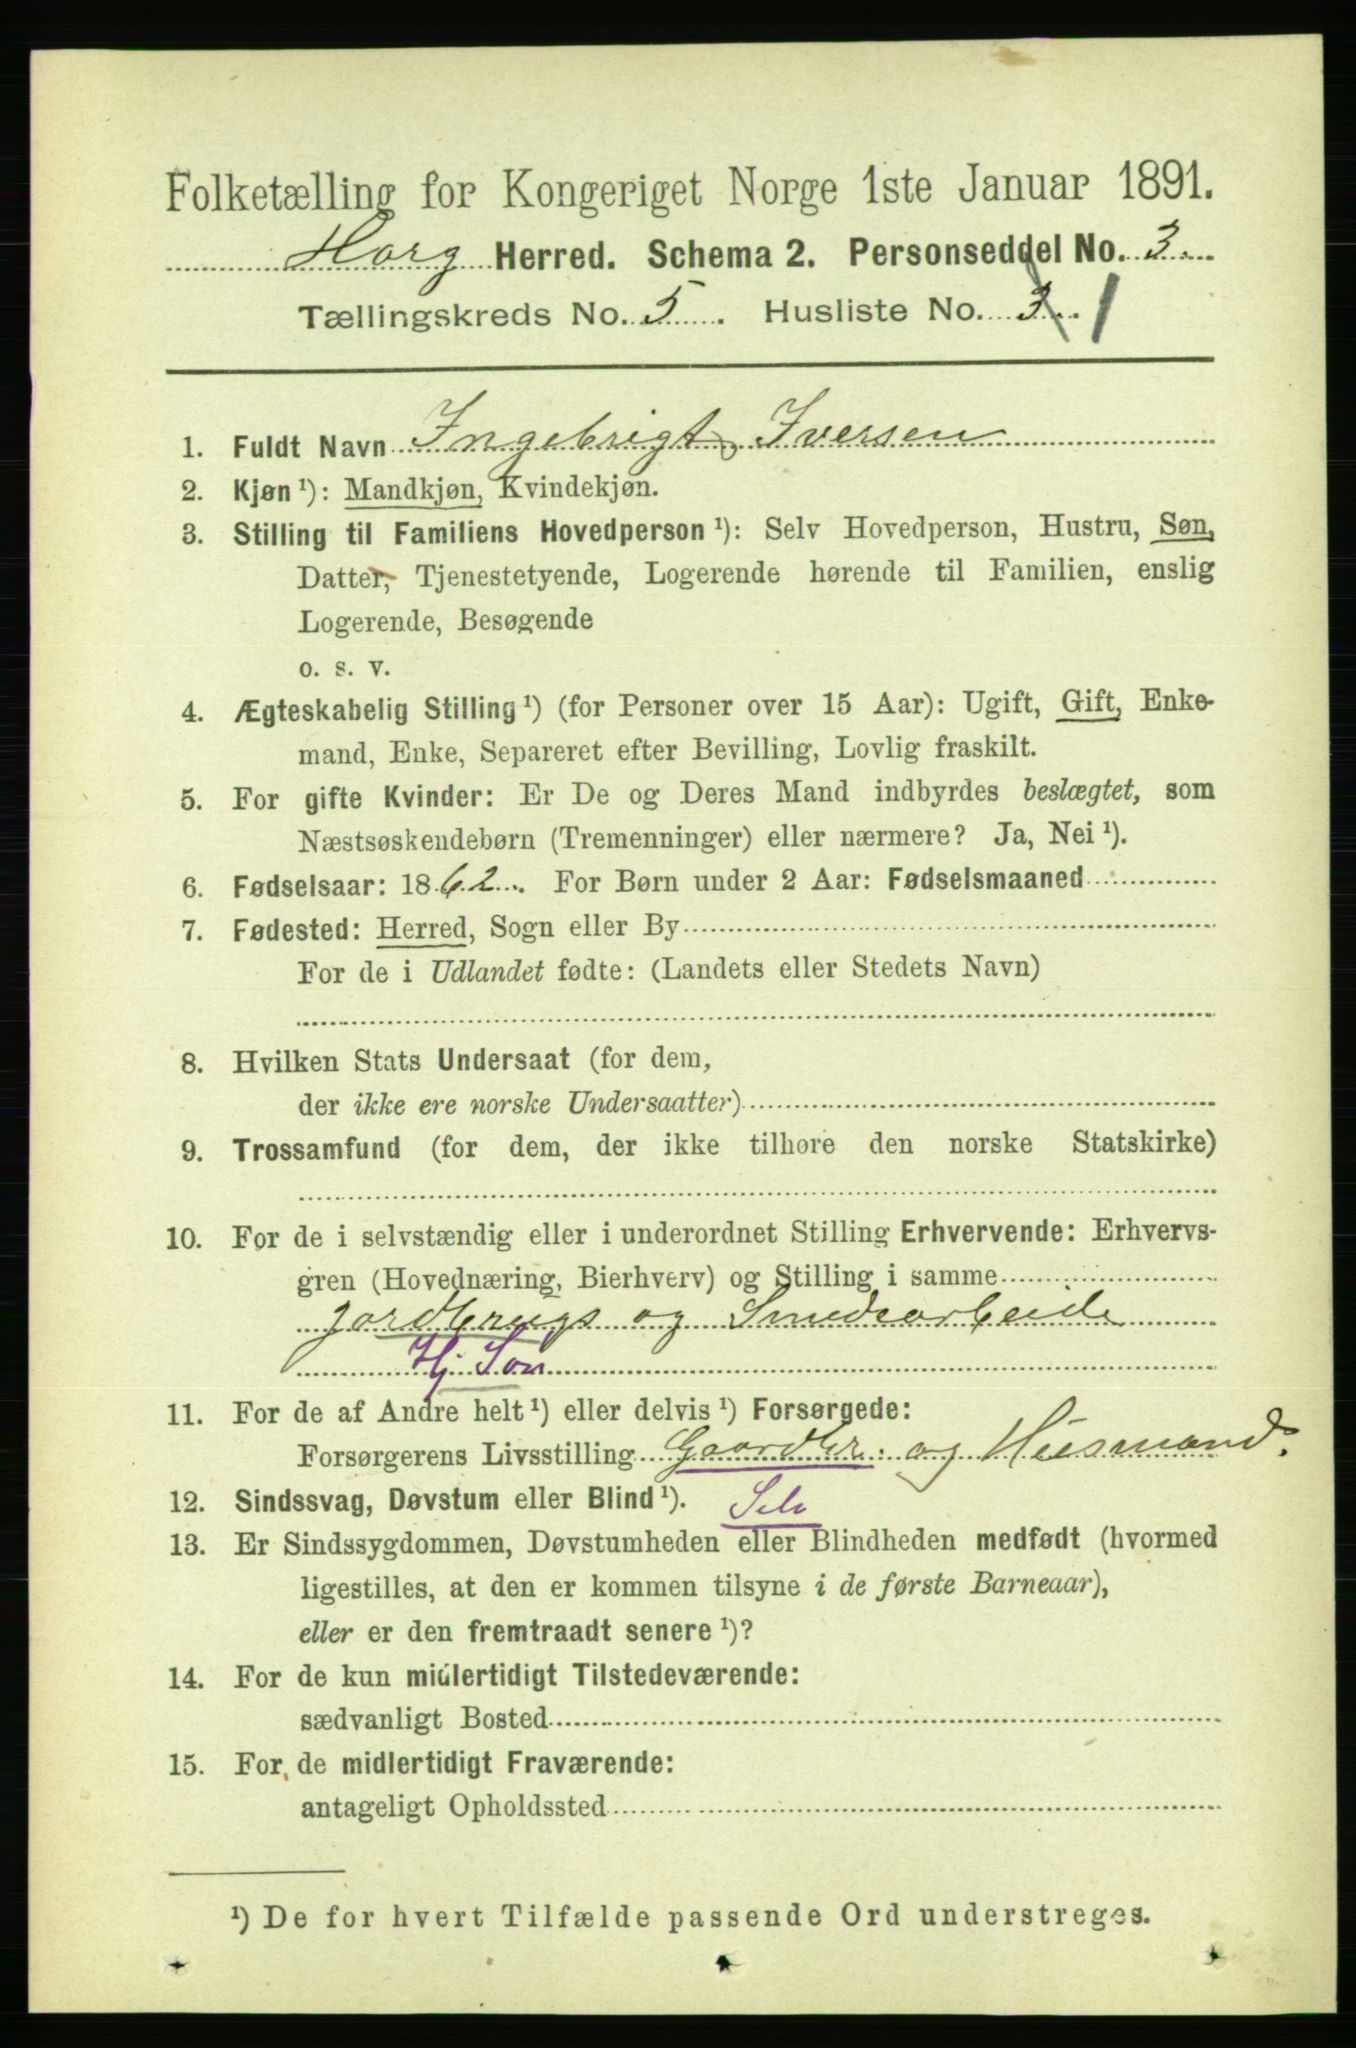 Folketælling for Kongeriget Norge 1ste Januar 1891.
Horg Herred. Schema 2. Personseddel No. 3.
Tællingskreds No. 5. Husliste No. 3. 1
1. Fuldt Navn Ingebrigt Iversen
2. Kjøn ¹): Mandkjøn, Kvindekjøn.
3. Stilling til Familiens Hovedperson ¹): Selv Hovedperson, Hustru, Søn,
Datter, Tjenestetyende, Logerende hørende til Familien, enslig
Logerende, Besøgende
o. s. v.
4. Ægteskabelig Stilling ¹) (for Personer over 15 Aar): Ugift, Gift, Enke-
mand, Enke, Separeret efter Bevilling, Lovlig fraskilt.
5. For gifte Kvinder: Er De og Deres Mand indbyrdes beslægtet, som
Næstsøskendebørn (Tremenninger) eller nærmere? Ja, Nei ¹).
6. Fødselsaar: 1862. For Børn under 2 Aar: Fødselsmaaned
7. Fødested: Herred, Sogn eller By
For de i Udlandet fødte: (Landets eller Stedets Navn)
8. Hvilken Stats Undersaat (for dem,
der ikke ere norske Undersaatter)
9. Trossamfund (for dem, der ikke tilhøre den norske Statskirke)
10. For de i selvstændig eller i underordnet Stilling Erhvervende: Erhvervs-
gren (Hovednæring, Bierhverv) og Stilling i samme
jordbrugs og Smedearbeide
Hj. Søn
11. For de af Andre helt ¹) eller delvis ¹) Forsørgede:
Forsørgerens Livsstilling Gaardbr. og Husmand.
12. Sindssvag, Døvstum eller Blind ¹). Selv
13. Er Sindssygdommen, Døvstumheden eller Blindheden medfødt (hvormed
ligestilles, at den er kommen tilsyne i de første Barneaar),
eller er den fremtraadt senere ¹)?
14. For de kun midlertidigt Tilstedeværende:
sædvanligt Bosted
15. For de midlertidigt Fraværende:
antageligt Opholdssted
¹) De for hvert Tilfælde passende Ord understreges.